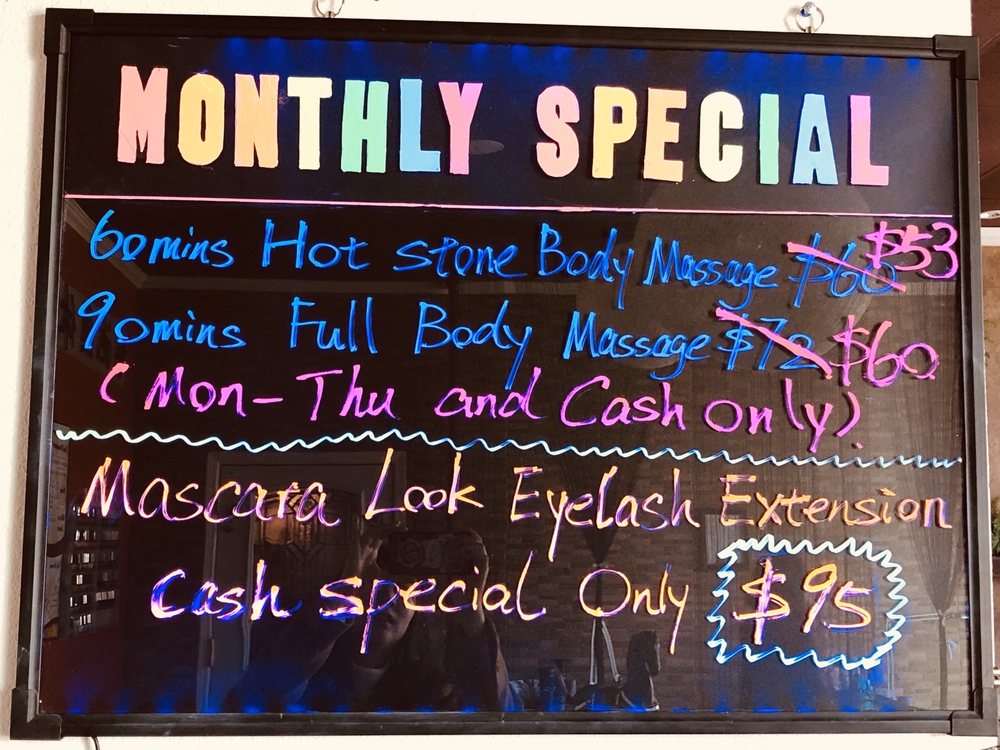 MONTHLY SPECIAL
60mins Hot stone Body Massage $60 $53
90mins Full Body Massage $72 $60
(Mon-Thu and Cash only).
Mascara Look Eyelash Extension
Cash special Only $95